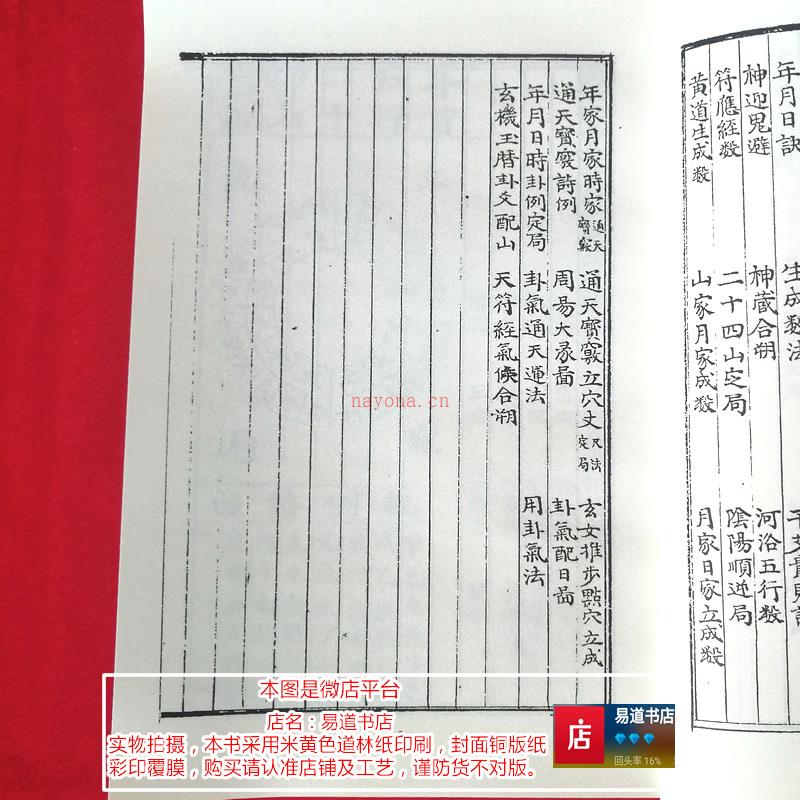 年月日訣 生成数法
神迎鬼避 神藏合朔 河洛五行数
符應經数 二十四山定局 陰陽順逆局
黃道生成数 山家月家成数 月家日家立成数
年家月家時家通天寶竅 通天寶竅立穴丈尺法定局 玄女推步點穴立成
通天寶竅詩例 周易大彖啚 卦氣配日啚
年月日時卦例定局 卦氣通天遁法 用卦氣法
玄機玉暦卦爻配山 天符經氣候合朔
nayona.cn
本图是微店平台
店名：易道书店
实物拍摄，本书采用米黄色道林纸印刷，封面铜版纸
彩印覆膜，购买请认准店铺及工艺，谨防货不对版。
店
易道书店
回头率 16%